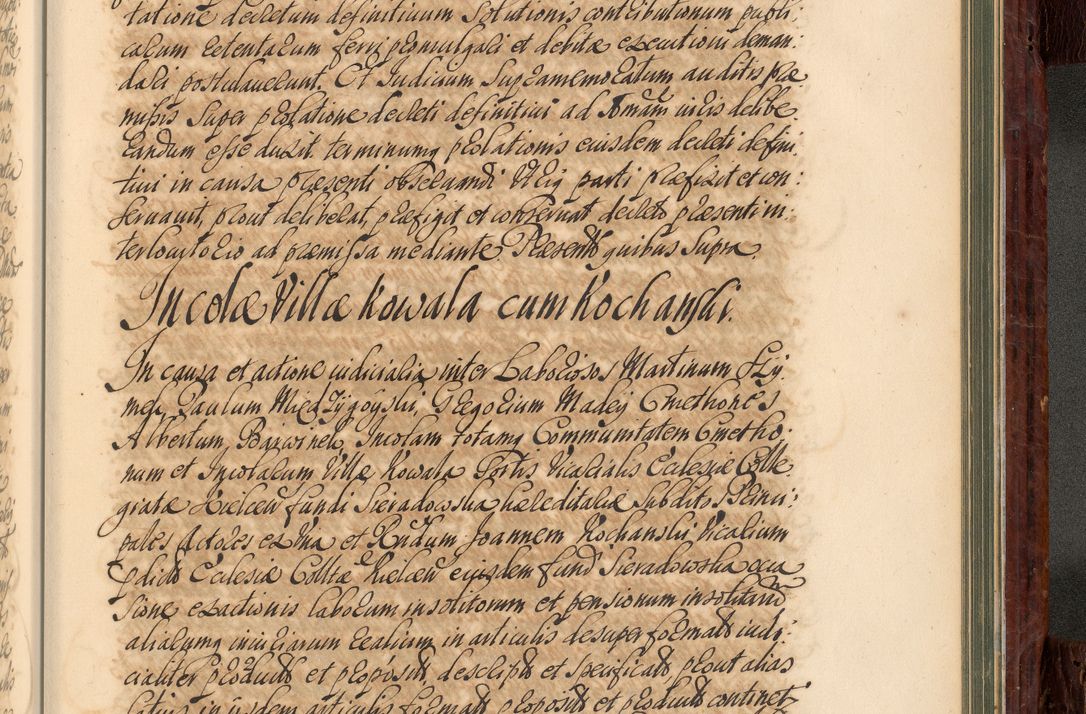 tatione decretum definitivum Solutionis contributionum publi:
carum retentarum ferri promulgari et debitæ executioni deman:
dari postulaverunt. Et Iudicium Supramemoratum auditis præ
missis Super prolatione decreti definitivi ad Romam iuris delibe
randum esse duxit terminumq prolationis eiusdem decreti defini:
tivi in causa præsenti observandi Utriq parti præfixit et con:
servavit, prout deliberat, præfigit et conservat decreto præsenti in:
terlocutorio ad præmissa mediante. Præsentib quibus Supra.
Incolæ Villæ Kowala cum Kochanski.
In causa et actione iudiciaria inter Laboriosos Martinum Szy
mek, Paulum Miedzygoyski, Gregorium Madey Cmethones
Albertum Incolam totamq Communitatem Cmetho:
num et Incolarum Villæ Kowala Sortis Vicarialis Ecclesiæ Colle
giatæ Kielcen fundi Sieradowska hæreditariæ Subditos Princi:
pales Actores ex Una et Rndum Joannem Kochanski Vicarium
pdictæ Ecclesiæ Colltæ Kielcen eiusdem fundi Sieradowska occa
sione exactionis laborum insolitorum et pensionum insolitarum
aliarumq iniuriarum realium in articulis desuper formatis iudi:
cialiter productis et propositis, descriptis et specificatis prout alias
latius in iisdem articulis formatis propositis et productis continetr